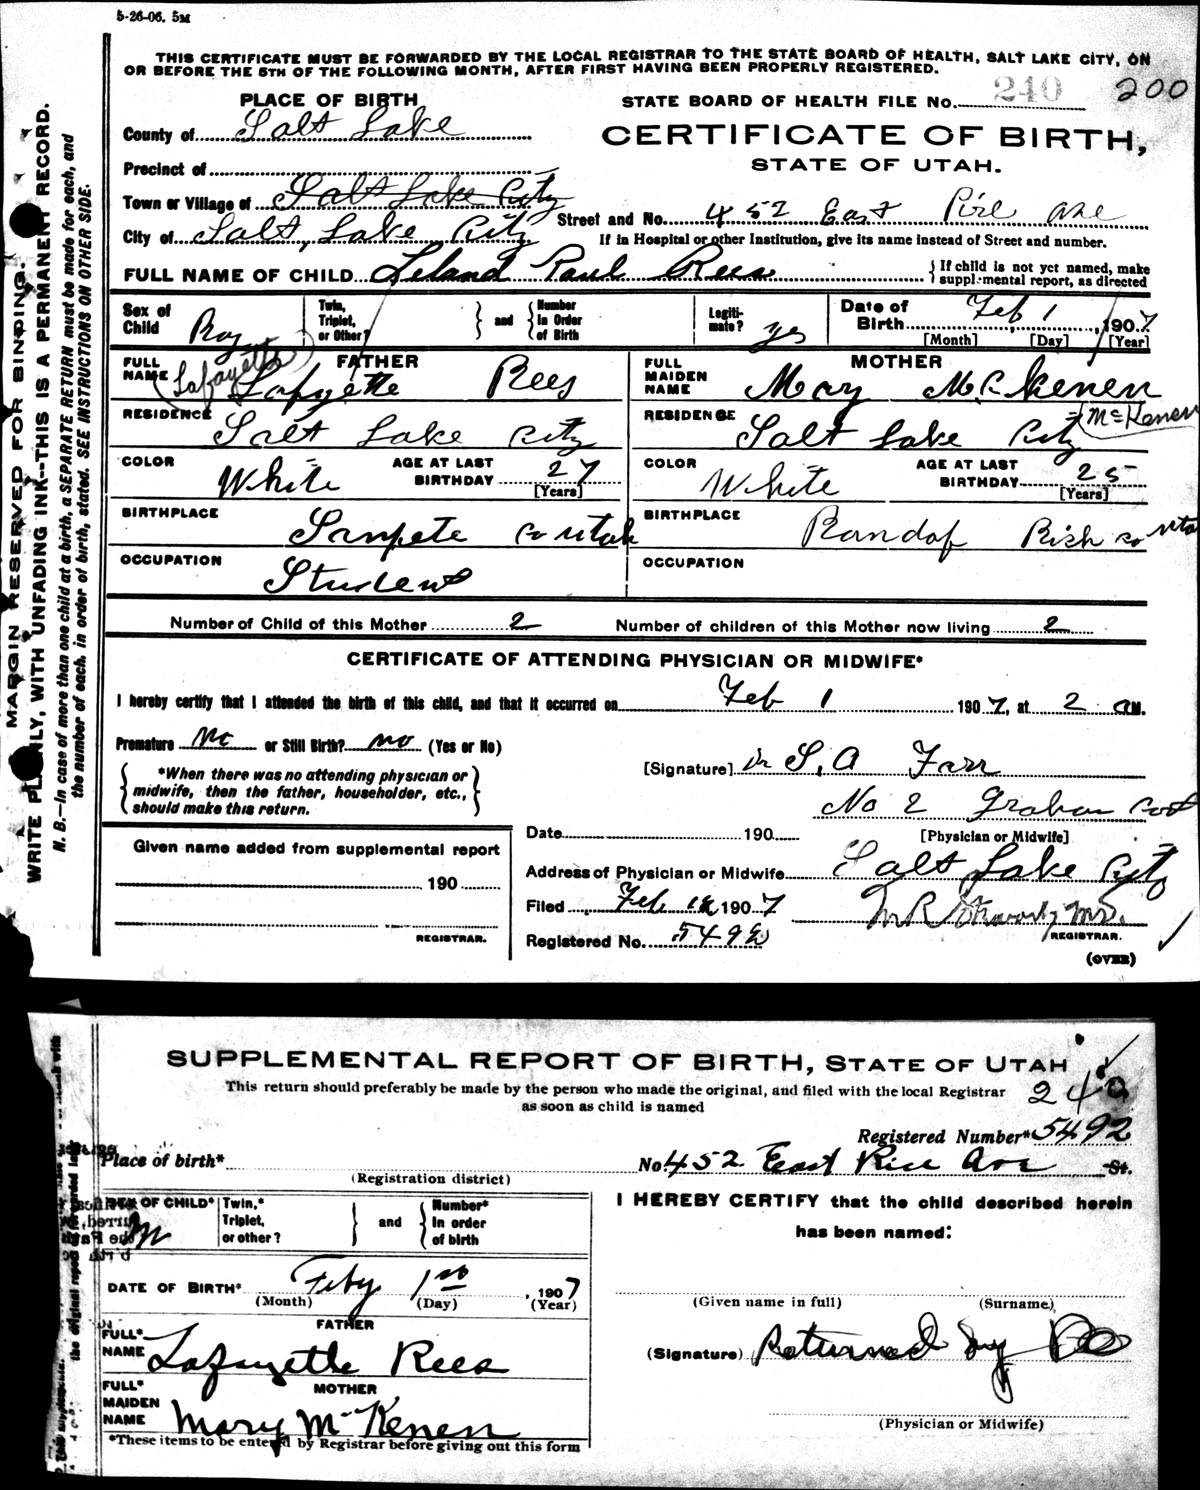 5-26-06. 5M
THIS CERTIFICATE MUST BE FORWARDED BY THE LOCAL REGISTRAR TO THE STATE BOARD OF HEALTH, SALT LAKE CITY, ON
OR BEFORE THE 5TH OF THE FOLLOWING MONTH, AFTER FIRST HAVING BEEN PROPERLY REGISTERED.
240 200
PLACE OF BIRTH
STATE BOARD OF HEALTH FILE No.
County of Salt Lake
CERTIFICATE OF BIRTH,
STATE OF UTAH.
Precinct of
Town or Village of Salt Lake City
Street and No. 452 East Ave
City of Salt Lake City
If in Hospital or other Institution, give its name instead of Street and number.
FULL NAME OF CHILD Leland Paul Rees
If child is not yet named, make
supplemental report, as directed
Sex of Child Boy
Twin, Triplet, or Other?
and
Number In Order of Birth
Legiti- mate? yes
Date of Birth Feb 1, 1907
[Month] [Day] [Year]
FULL NAME FATHER
(Lafayette) Lafyette Rees
FULL MAIDEN NAME MOTHER
Mary McKenen
McKenen
RESIDENCE Salt Lake City
RESIDENCE Salt Lake City
COLOR White AGE AT LAST BIRTHDAY 27 [Years]
COLOR White AGE AT LAST BIRTHDAY 25 [Years]
BIRTHPLACE Sanpete Co Utah
BIRTHPLACE Randof Rich Co Uta
OCCUPATION Student
OCCUPATION
Number of Child of this Mother 2
Number of children of this Mother now living 2
CERTIFICATE OF ATTENDING PHYSICIAN OR MIDWIFE*
I hereby certify that I attended the birth of this child, and that it occurred on Feb 1 1907, at 2 a M.
Premature No or Still Birth? no (Yes or No)
[Signature] Dr S. A Farr
*When there was no attending physician or
midwife, then the father, householder, etc.,
should make this return.
No 2
Date 190
[Physician or Midwife]
Given name added from supplemental report
190
REGISTRAR.
Address of Physician or Midwife Salt Lake City
Filed Feb 1907
M.D.
REGISTRAR.
Registered No. 5492
(OVER)
MARGIN RESERVED FOR BINDING.
WRITE PLAINLY, WITH UNFADING INK--THIS IS A PERMANENT RECORD.
N. B.--In case of more than one child at a birth, a SEPARATE RETURN must be made for each, and
the number of each, in order of birth, stated. SEE INSTRUCTIONS ON OTHER SIDE.
SUPPLEMENTAL REPORT OF BIRTH, STATE OF UTAH
This return should preferably be made by the person who made the original, and filed with the local Registrar
as soon as child is named
240
Registered Number* 5492
Place of birth*
No 452 East Rice Ave St.
(Registration district)
SEX OF CHILD* M
Twin,* Triplet, or other?
and
Number* In order of birth
I HEREBY CERTIFY that the child described herein
has been named:
DATE OF BIRTH* Feby 1st, 1907
(Month) (Day) (Year)
(Given name in full) (Surname)
FATHER
FULL* NAME Lafayette Rees
(Signature) Returned by
MOTHER
FULL* MAIDEN NAME Mary McKenen
(Physician or Midwife)
*These items to be entered by Registrar before giving out this form